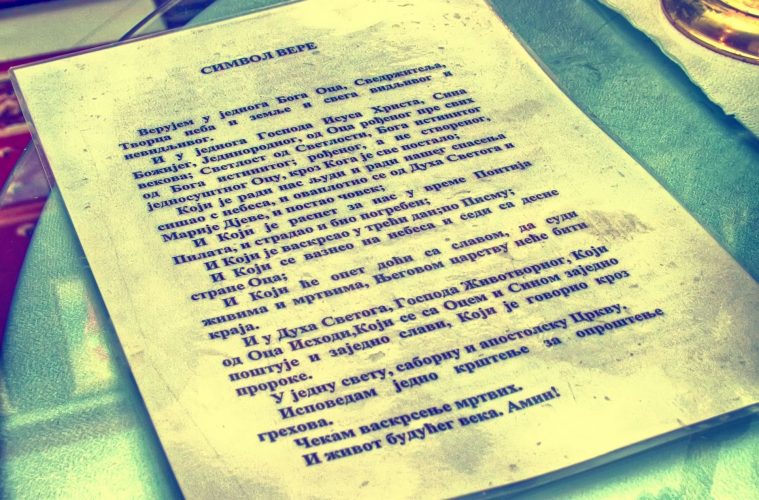 СИМВОЛ ВЕРЕ
Верујем у једнога Бога Оца, Сведржитеља,
Творца неба и земље и свега видљивог и
невидљивог.
И у једног Господа Исуса Христа, Сина
Божијег, Јединородног, од Оца рођеног пре свих
векова; Светлост од Светлости, Бога истинитог
од Бога истинитог; рођеног, а не створеног,
једносуштног Оцу, кроз Кога је све постало;
Који је ради нас људи и ради нашег спасења
сишао с небеса, и оваплотио се од Духа Светога и
Марије Дјеве, и постао човек;
И Који је распет за нас у време Понтија
Пилата, и страдао и био погребен;
И Који је васкрсао у трећи дан,по Писму;
И Који се вазнео на небеса и седи са десне
стране Оца;
И Који ће опет доћи са славом, да суди
живима и мртвима, Његовом царству неће бити
краја.
И у Духа Светога, Господа Животворног, Који
од Оца Исходи,Који се са Оцем и Сином заједно
поштује и заједно слави, Који је говорио кроз
пророке.
У једну свету, саборну и апостолску Цркву.
Исповедам једно крштење за опроштење
грехова.
Чекам васкрсење мртвих.
И живот будућег века. Амин!